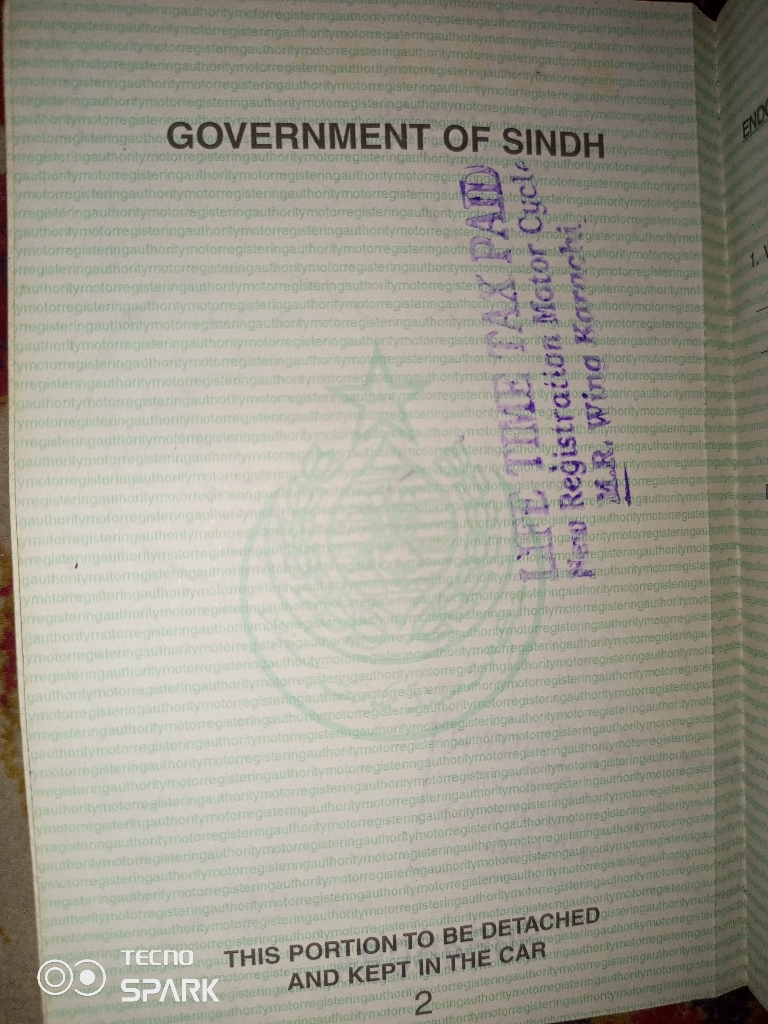 GOVERNMENT OF SINDH
LIFE TIME TAX PAID
New Registration Motor Cycle
M.R. Wing Karachi.
THIS PORTION TO BE DETACHED
AND KEPT IN THE CAR
2
TECNO
SPARK
1.